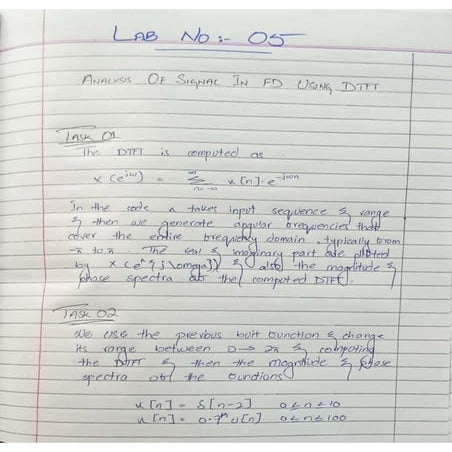 LAB No :- 05
ANALYSIS OF SIGNAL IN FD USING DTFT
TASK 01
The DTFT is computed as
X(e^jω) = Σ_{n=-∞}^{∞} x[n]. e^-jωn
In the code x takes input sequence & range
& then we generate angular frequencies that
cover the entire frequency domain, typically from
-π to π. The real & imaginary part are plotted
by X(e^{j\omega}) & also the magnitude &
phase spectra of the computed DTFT.
TASK 02
We use the previous built function & change
its range between 0→2π & computing
the DTFT & then the magnitude & phase
spectra of the functions
x[n] = δ[n-2] 0≤n≤10
x[n] = 0.7^n u[n] 0≤n≤100